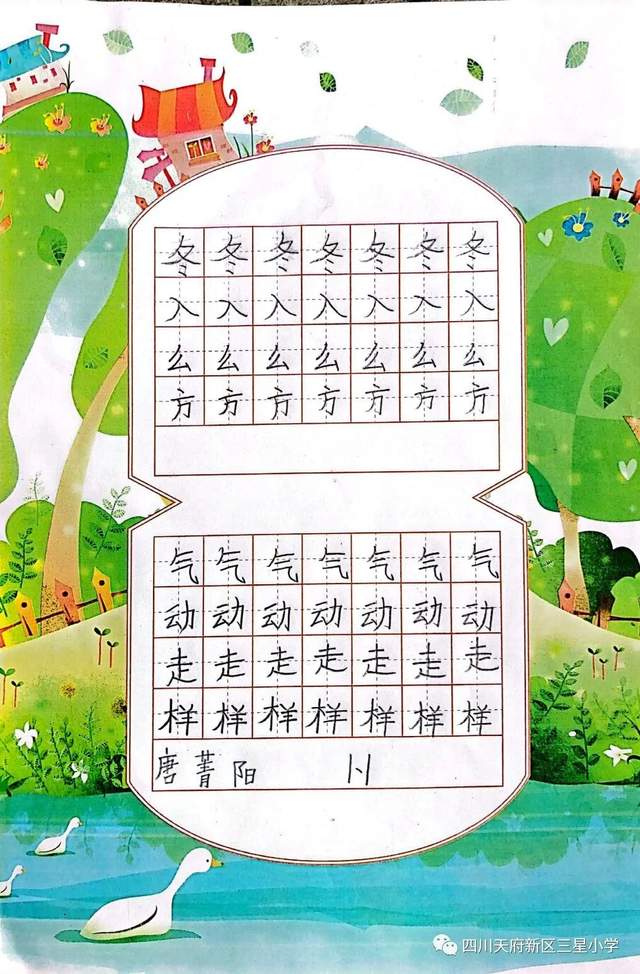 冬冬冬冬冬冬冬
入入入入入入入
么么么么么么么
方方方方方方方
气气气气气气气
动动动动动动动
走走走走走走走
样样样样样样样
唐菁阳 1.1
四川天府新区三星小学